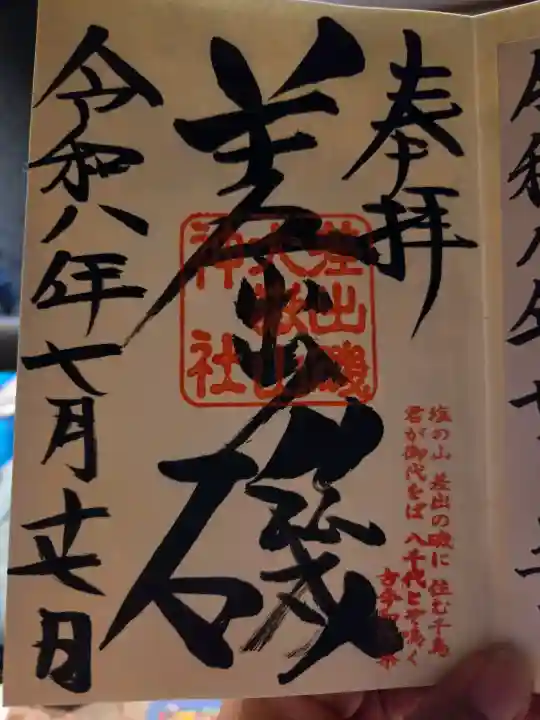 奉拝
差出磯
差出磯
大嶽山
神社
塩の山 差出の磯に 住む千鳥
君が御代をば 八千代とぞ鳴く
令和八年七月廿日